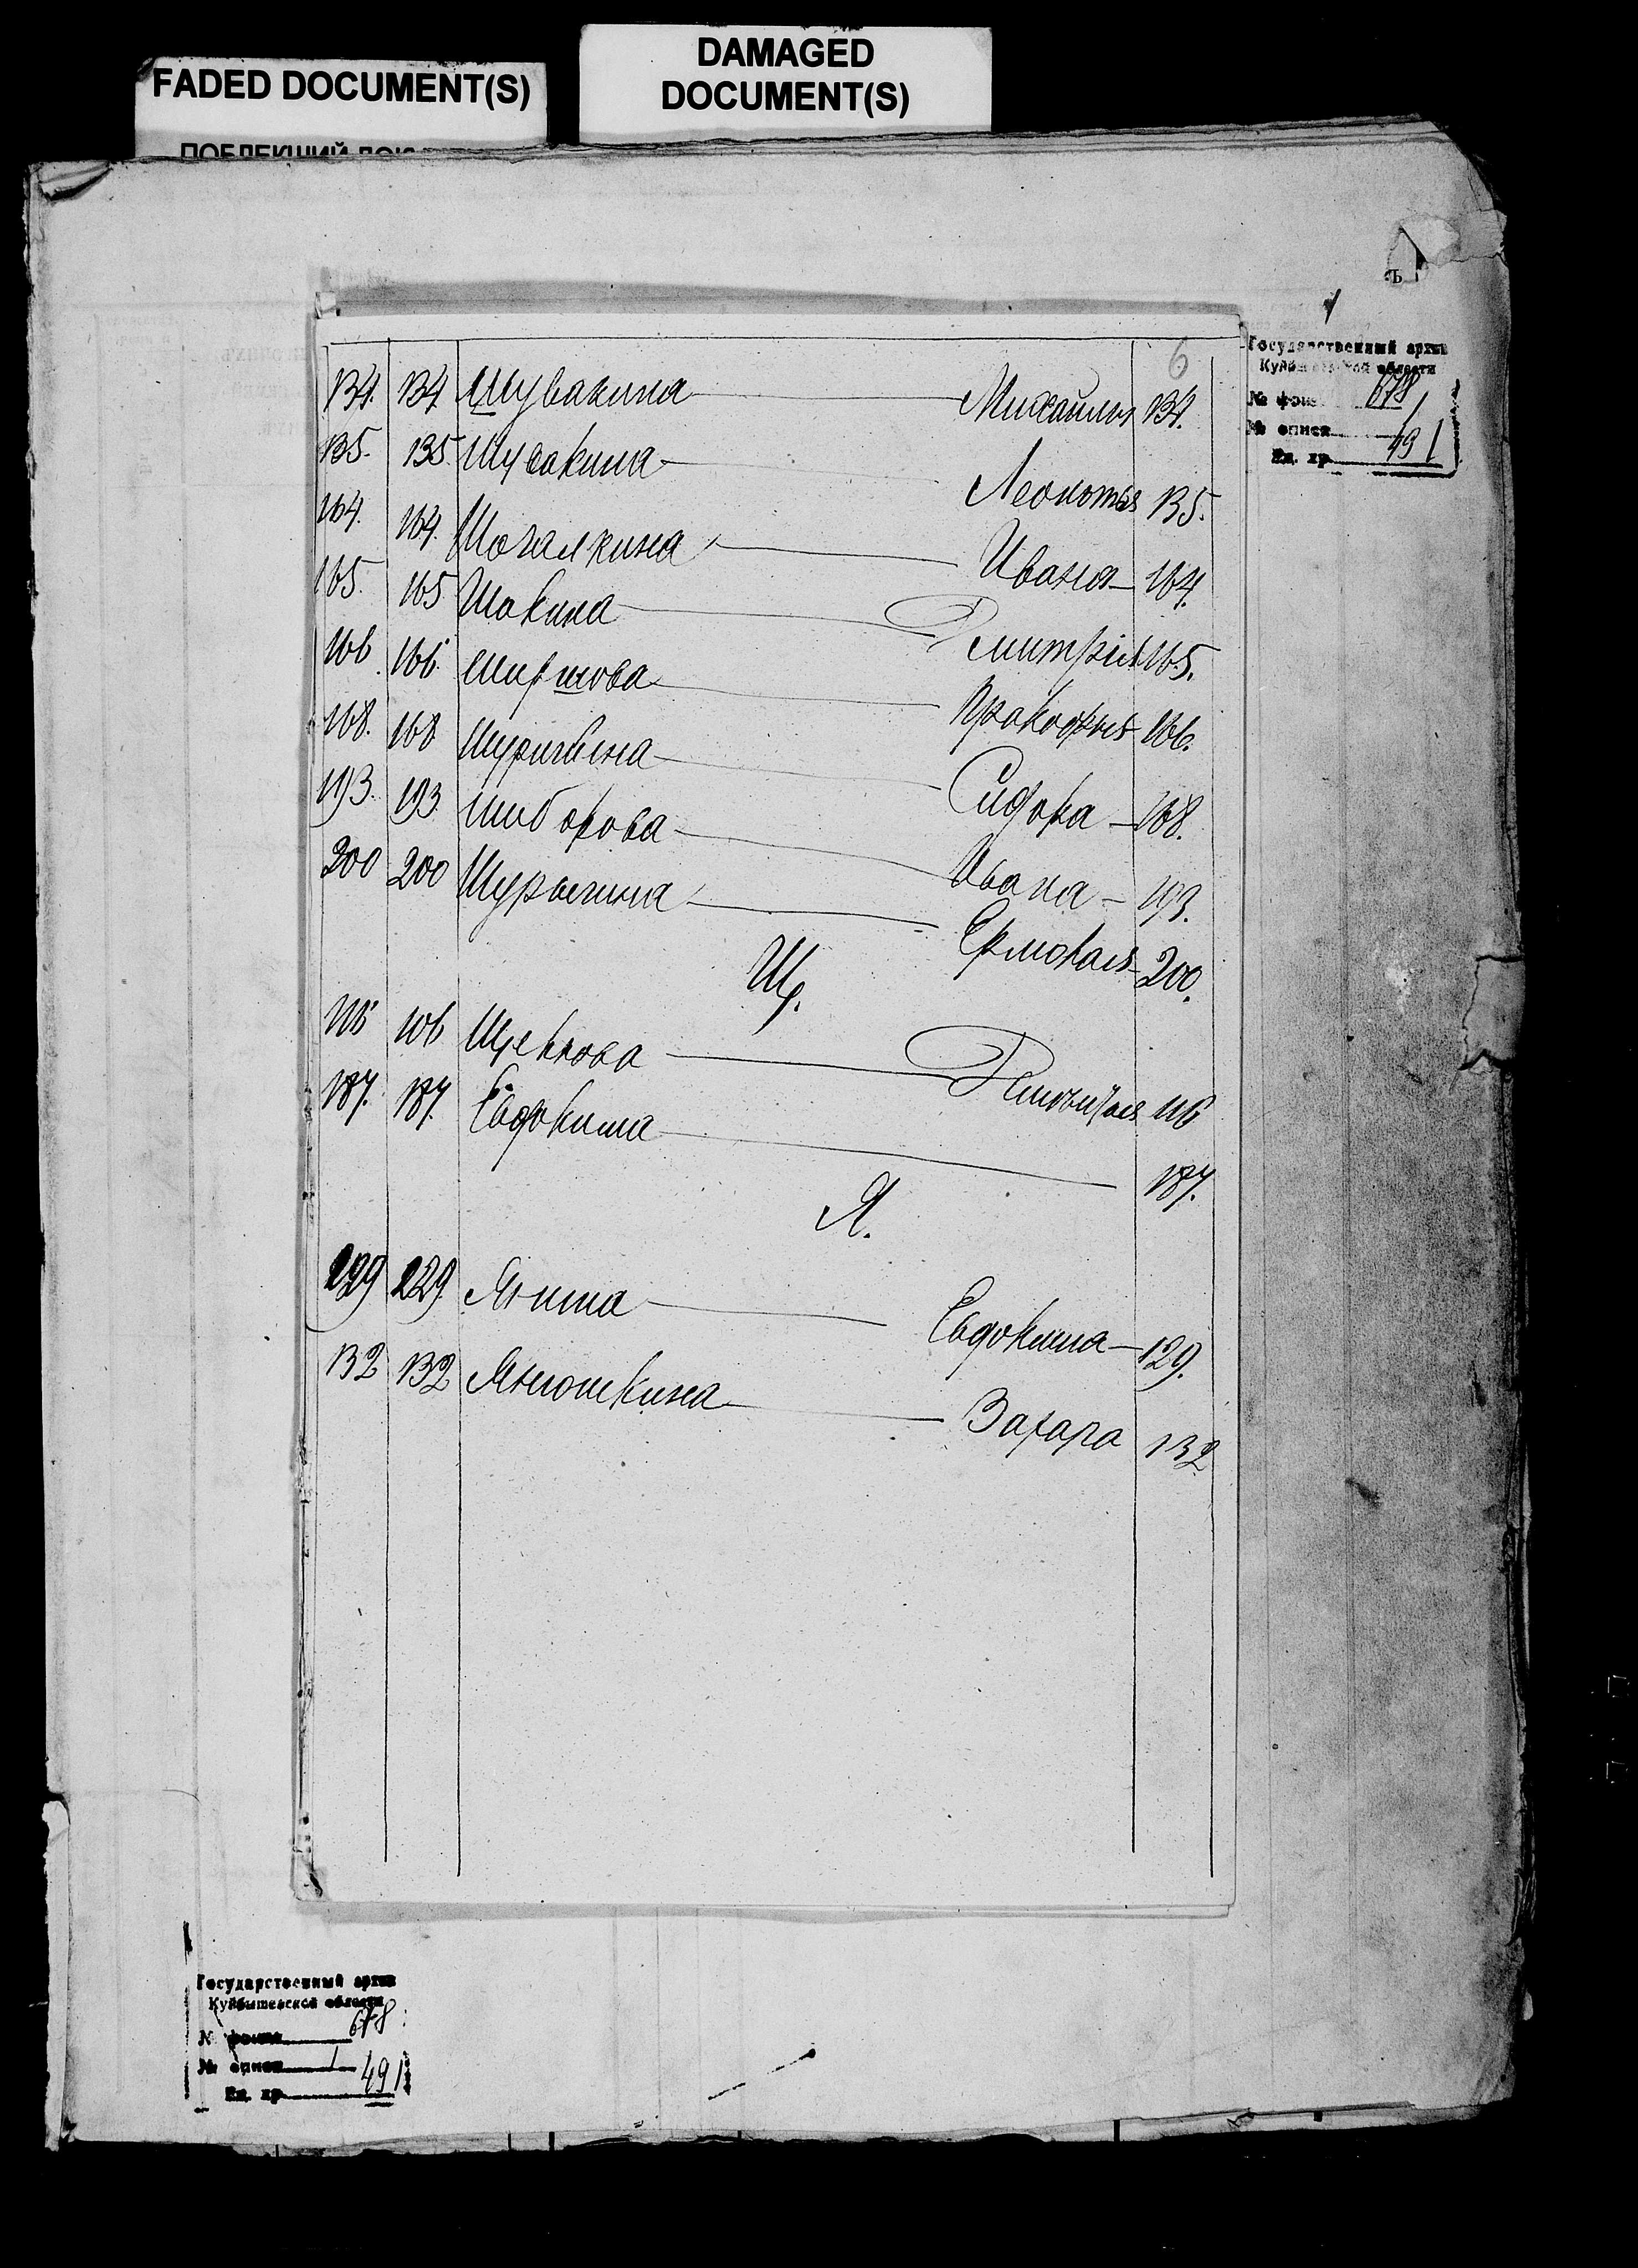 FADED DOCUMENT(S)
DAMAGED
DOCUMENT(S)
ъ
6
Государственный архив
Куйбышевской области
№ фон 678
№ описи 1
Ед. хр. 491
134. 134 Шувакина Михаила 134.
135. 135 Шувакина Леонтья 135.
164. 164. Шогалкина Ивана 164.
165. 165 Шокина Дмитрія 165.
166 166 Ширшова Прокофья 166.
168. 168 Шуригина Сидора 168.
193. 193 Шиборова Ивана 193.
200 200 Шурыгина Ермолая 200.
Щ.
116 106 Щеклова 116
187. 187. Евдокима 187.
Я.
129 129 Янина Евдокима 129.
132 132 Янюшкина Захара 132
Государственный архив
Куйбышевской области
№ фонда 678
№ описи 1
Ед. хр. 491